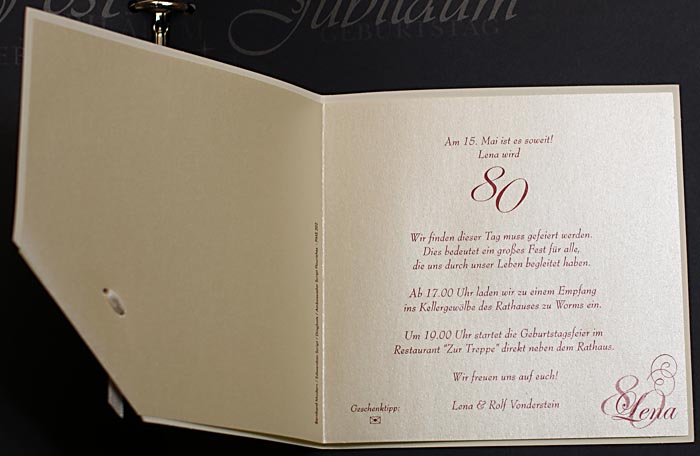 Fest Jubiläum
GEBURTSTAG
Am 15. Mai ist es soweit!
Lena wird
80
Wir finden dieser Tag muss gefeiert werden.
Dies bedeutet ein großes Fest für alle,
die uns durch unser Leben begleitet haben.
Ab 17.00 Uhr laden wir zu einem Empfang
ins Kellergewölbe des Rathauses zu Worms ein.
Um 19.00 Uhr startet die Geburtstagsfeier im
Restaurant "Zur Treppe" direkt neben dem Rathaus.
Wir freuen uns auf euch!
Geschenktipp:
Lena & Rolf Vonderstein
80
Lena